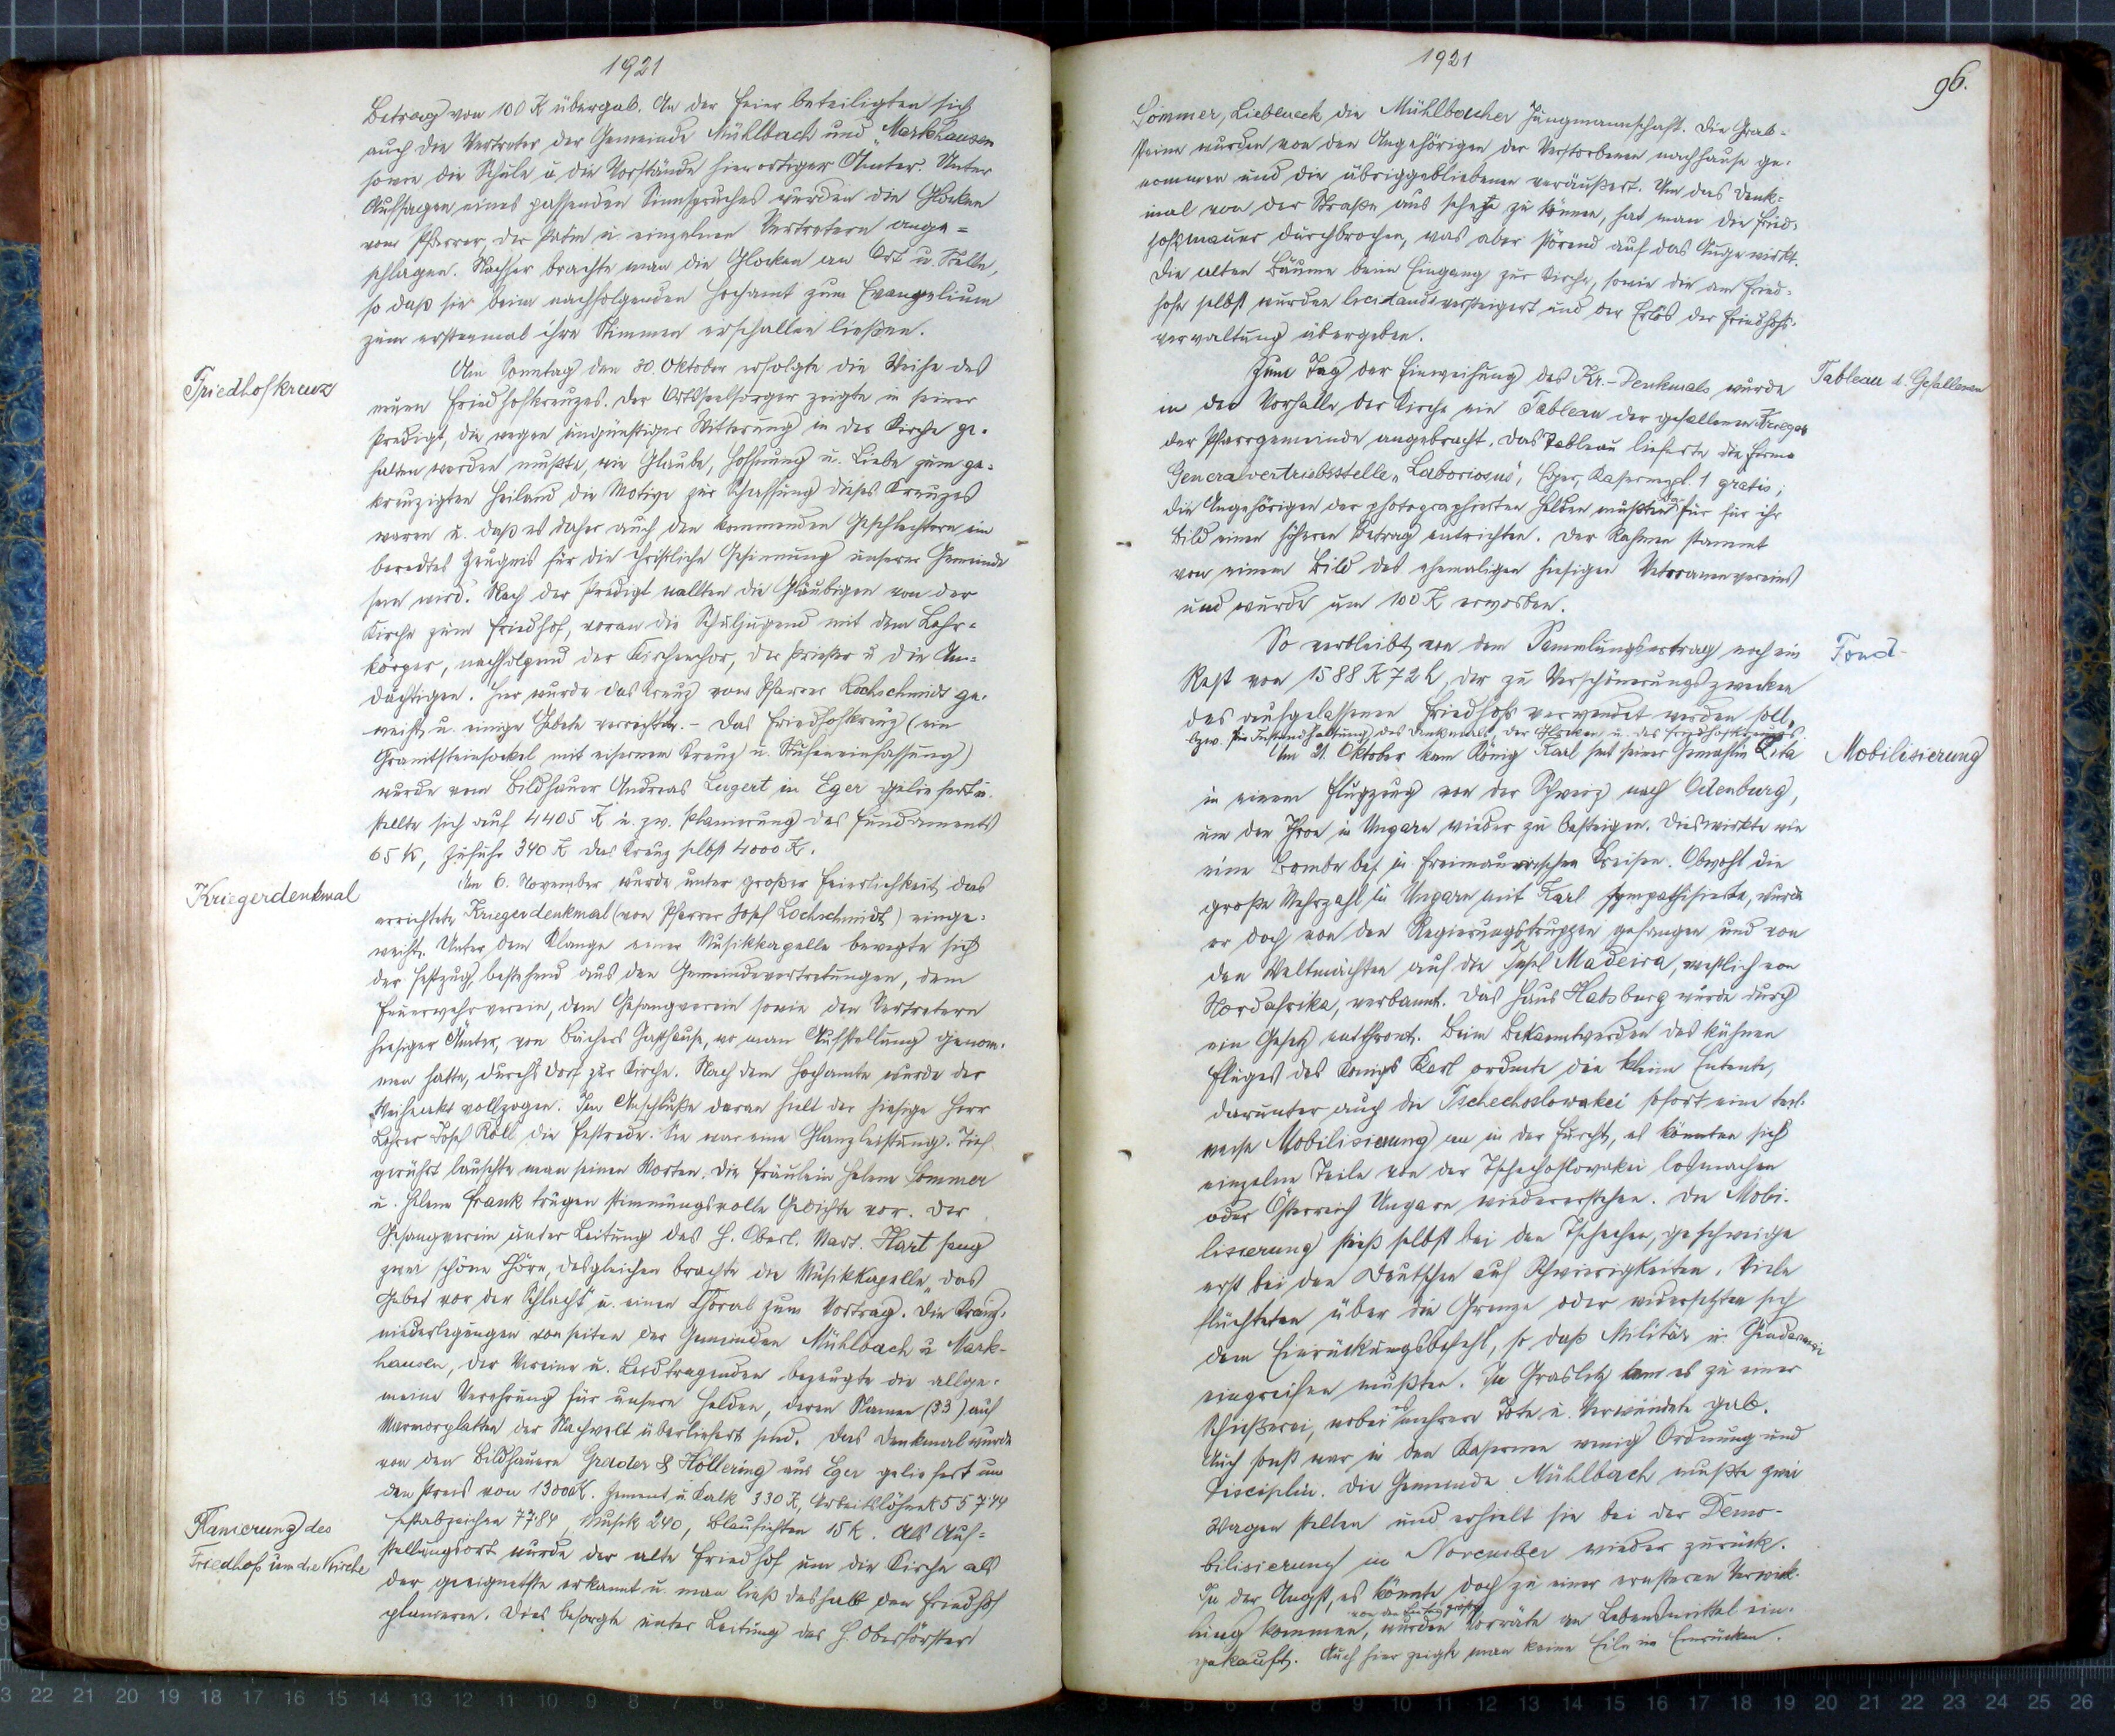 1921
Betrag von 100 K übergab. An der Feier beteiligten sich
auch die Vertreter der Gemeinde Mühlbach und Markhausen
sowie die Schule u. die Vorstände hierortiger Ämter. Unter
Aufsagen eines passenden Sinnspruches wurden die Glocken
vom Pfarrer, der Patin u. einzelnen Vertretern ange=
schlagen. Nachher brachte man die Glocken an Ort u. Stelle,
so daß sie beim nachfolgenden Hochamt zum Evangelium
zum erstenmal ihre Stimmen erschallen ließen.
Friedhofkreuz
Am Sonntag den 30. Oktober erfolgte die Weihe des
neuen Friedhofkreuzes. Der Ortsseelsorger zeigte in seiner
Predigt, die wegen ungünstiger Witterung in der Kirche ge-
halten werden mußte, wie Glaube, Hoffnung u. Liebe zum ge-
kreuzigten Heiland die Motive zur Schaffung dieses Kreuzes
waren u. daß es daher auch den kommenden Geschlechtern ein
beredtes Zeugnis für die christliche Gesinnung unserer Gemeinde
sein wird. Nach der Predigt wallten die Gläubigen von der
Kirche zum Friedhof, voran die Schuljugend mit dem Lehr=
körper, nachfolgend der Kirchenchor, der Priester u. die An=
dächtigen. Hier wurde das Kreuz vom Pfarrer Lochschmidt ge-
weiht u. einige Gebete verrichtet. - Das Friedhofkreuz (ein
Granitsteinsockel mit eisernem Kreuz u. Stufeneinfassung)
wurde vom Bildhauer Andreas Lugert in Eger geliefert u.
stellte sich auf 4405 K u. zw. Planierung des Fundaments
65 K, Zufuhr 340 K das Kreuz selbst 4000 K.
Kriegerdenkmal
Am 6. November wurde unter großer Feierlichkeit das
errichtete Kriegerdenkmal (von Pfarrer Josef Lochschmidt) einge-
weiht. Unter dem Klange einer Musikkapelle bewegte sich
der Festzug, bestehend aus den Gemeindevertretungen, dem
Feuerwehrverein, dem Gesangverein sowie den Vertretern
hiesiger Ämter, von Bächers Gasthause, wo man Aufstellung genom-
men hatte, durchs Dorf zur Kirche. Nach dem Hochamte wurde der
Weiheakt vollzogen. Im Anschluße daran hielt der hiesige Herr
Lehrer Josef Röll die Festrede. Sie war eine Glanzleistung. Tief
gerührt lauschte man seinen Worten. Die Fräulein Helene Sommer
u. Helene Frank trugen stimmungsvolle Gedichte vor. Der
Gesangverein unter Leitung des H. Oberl. Mart. Hart sang
zwei schöne Chöre, desgleichen brachte die Musikkapelle „das
Gebet vor der Schlacht" u. einen Choral zum Vortrag. Die Kranz-
niederlegungen von seiten der Gemeinden Mühlbach u. Mark-
hausen, der Vereine u. Leidtragenden bezeugte die allge-
meine Verehrung für unsere Helden, deren Namen (33) auf
Marmorplatten der Nachwelt überliefert sind. Das Denkmal wurde
von den Bildhauern Grader & Höllering aus Eger geliefert um
den Preis von 13000 K. Zement u. Kalk 330 K, Arbeitslöhne K 557·44
Festabzeichen 77·84, Musik 240, Blaufichten 15 K. Als Auf=
Planierung des
Friedhofs um die Kirche
stellungsort wurde der alte Friedhof um die Kirche als
der geeignetste erkannt u. man ließ deshalb den Friedhof
planieren. Dies besorgte unter Leitung des H. Oberförsters
1921
96.
Sommer, Liebeneck die Mühlbacher Jungmannschaft. Die Grab=
steine wurden von den Angehörigen der Verstorbenen nachhause ge-
nommen und die übriggebliebenen veräußert. Um das Denk=
mal von der Straße aus sehen zu können, hat man die Fried-
hofmauer durchbrochen, was aber störend auf das Auge wirkt.
Die alten Bäume beim Eingang zur Kirche, sowie die am Fried-
hofe selbst wurden licitando versteigert und der Erlös der Friedhofs-
verwaltung übergeben.
Tableau d. Gefallenen
Zum Tag der Einweihung des Kr.-Denkmals wurde
in der Vorhalle der Kirche ein Tableau der gefallenen Krieger
der Pfarrgemeinde angebracht. Das Tableau lieferte die Firma
Generalvertriebsstelle „Laboriosus", Eger, Kasernpl. 1 gratis;
die Angehörigen der photographierten Helden mußten dafür für ihr
Bild einen höheren Betrag entrichten. Der Rahmen stammt
von einem Bild des ehemaligen hiesigen Veteranenvereins
und wurde um 100 K erworben.
Fond
So verbleibt von dem Sammlungsertrag noch ein
Rest von 1588 K 72 h, der zu Verschönerungszwecken
des aufgelassenen Friedhofs verwendet werden soll,
bzw. für Instandhaltung des Denkmals, der Glocken u. des Friedhofkreuzes.
Mobilisierung
Am 21. Oktober kam König Karl mit seiner Gemahlin Zita
in einem Flugzeug von der Schweiz nach Ödenburg,
um den Thron in Ungarn wieder zu besteigen. Dies wirkte wie
eine Bombe bes. in freimaurerischen Kreisen. Obwohl die
große Mehrzahl in Ungarn mit Karl sympathisierte, wurde
er doch von den Regierungstruppen gefangen und von
den Weltmächten auf die Insel Madeira, westlich von
Nordafrika, verbannt. Das Haus Habsburg wurde durch
ein Gesetz entthront. Beim Bekanntwerden des kühnen
Fluges des Königs Karl ordnete die kleine Entente,
darunter auch die Tschechoslowakei sofort eine teil-
weise Mobilisierung an in der Furcht, es könnten sich
einzelne Teile von der Tschechoslowakei losmachen
oder Österreich Ungarn wiedererstehen. Die Mobi-
lisierung stieß selbst bei den Tschechen, geschweige
erst bei den Deutschen auf Schwierigkeiten. Viele
flüchteten über die Grenze oder widersetzten sich
dem Einrückungsbefehl, so daß Militär u. Gendarmerie
eingreifen mußten. In Graslitz kam es zu einer
Schießerei, wobei es mehrere Tote u. Verwundete gab.
Auch sonst war in den Kasernen wenig Ordnung und
Disciplin. Die Gemeinde Mühlbach mußte zwei
Wagen stellen und erhielt sie bei der Demo-
bilisierung im November wieder zurück.
In der Angst, es könnte doch zu einer ernsteren Verwick-
lung kommen, wurden von den Leuten große Vorräte an Lebensmittel ein-
gekauft. Auch hier zeigte man keine Eile im Einrücken.